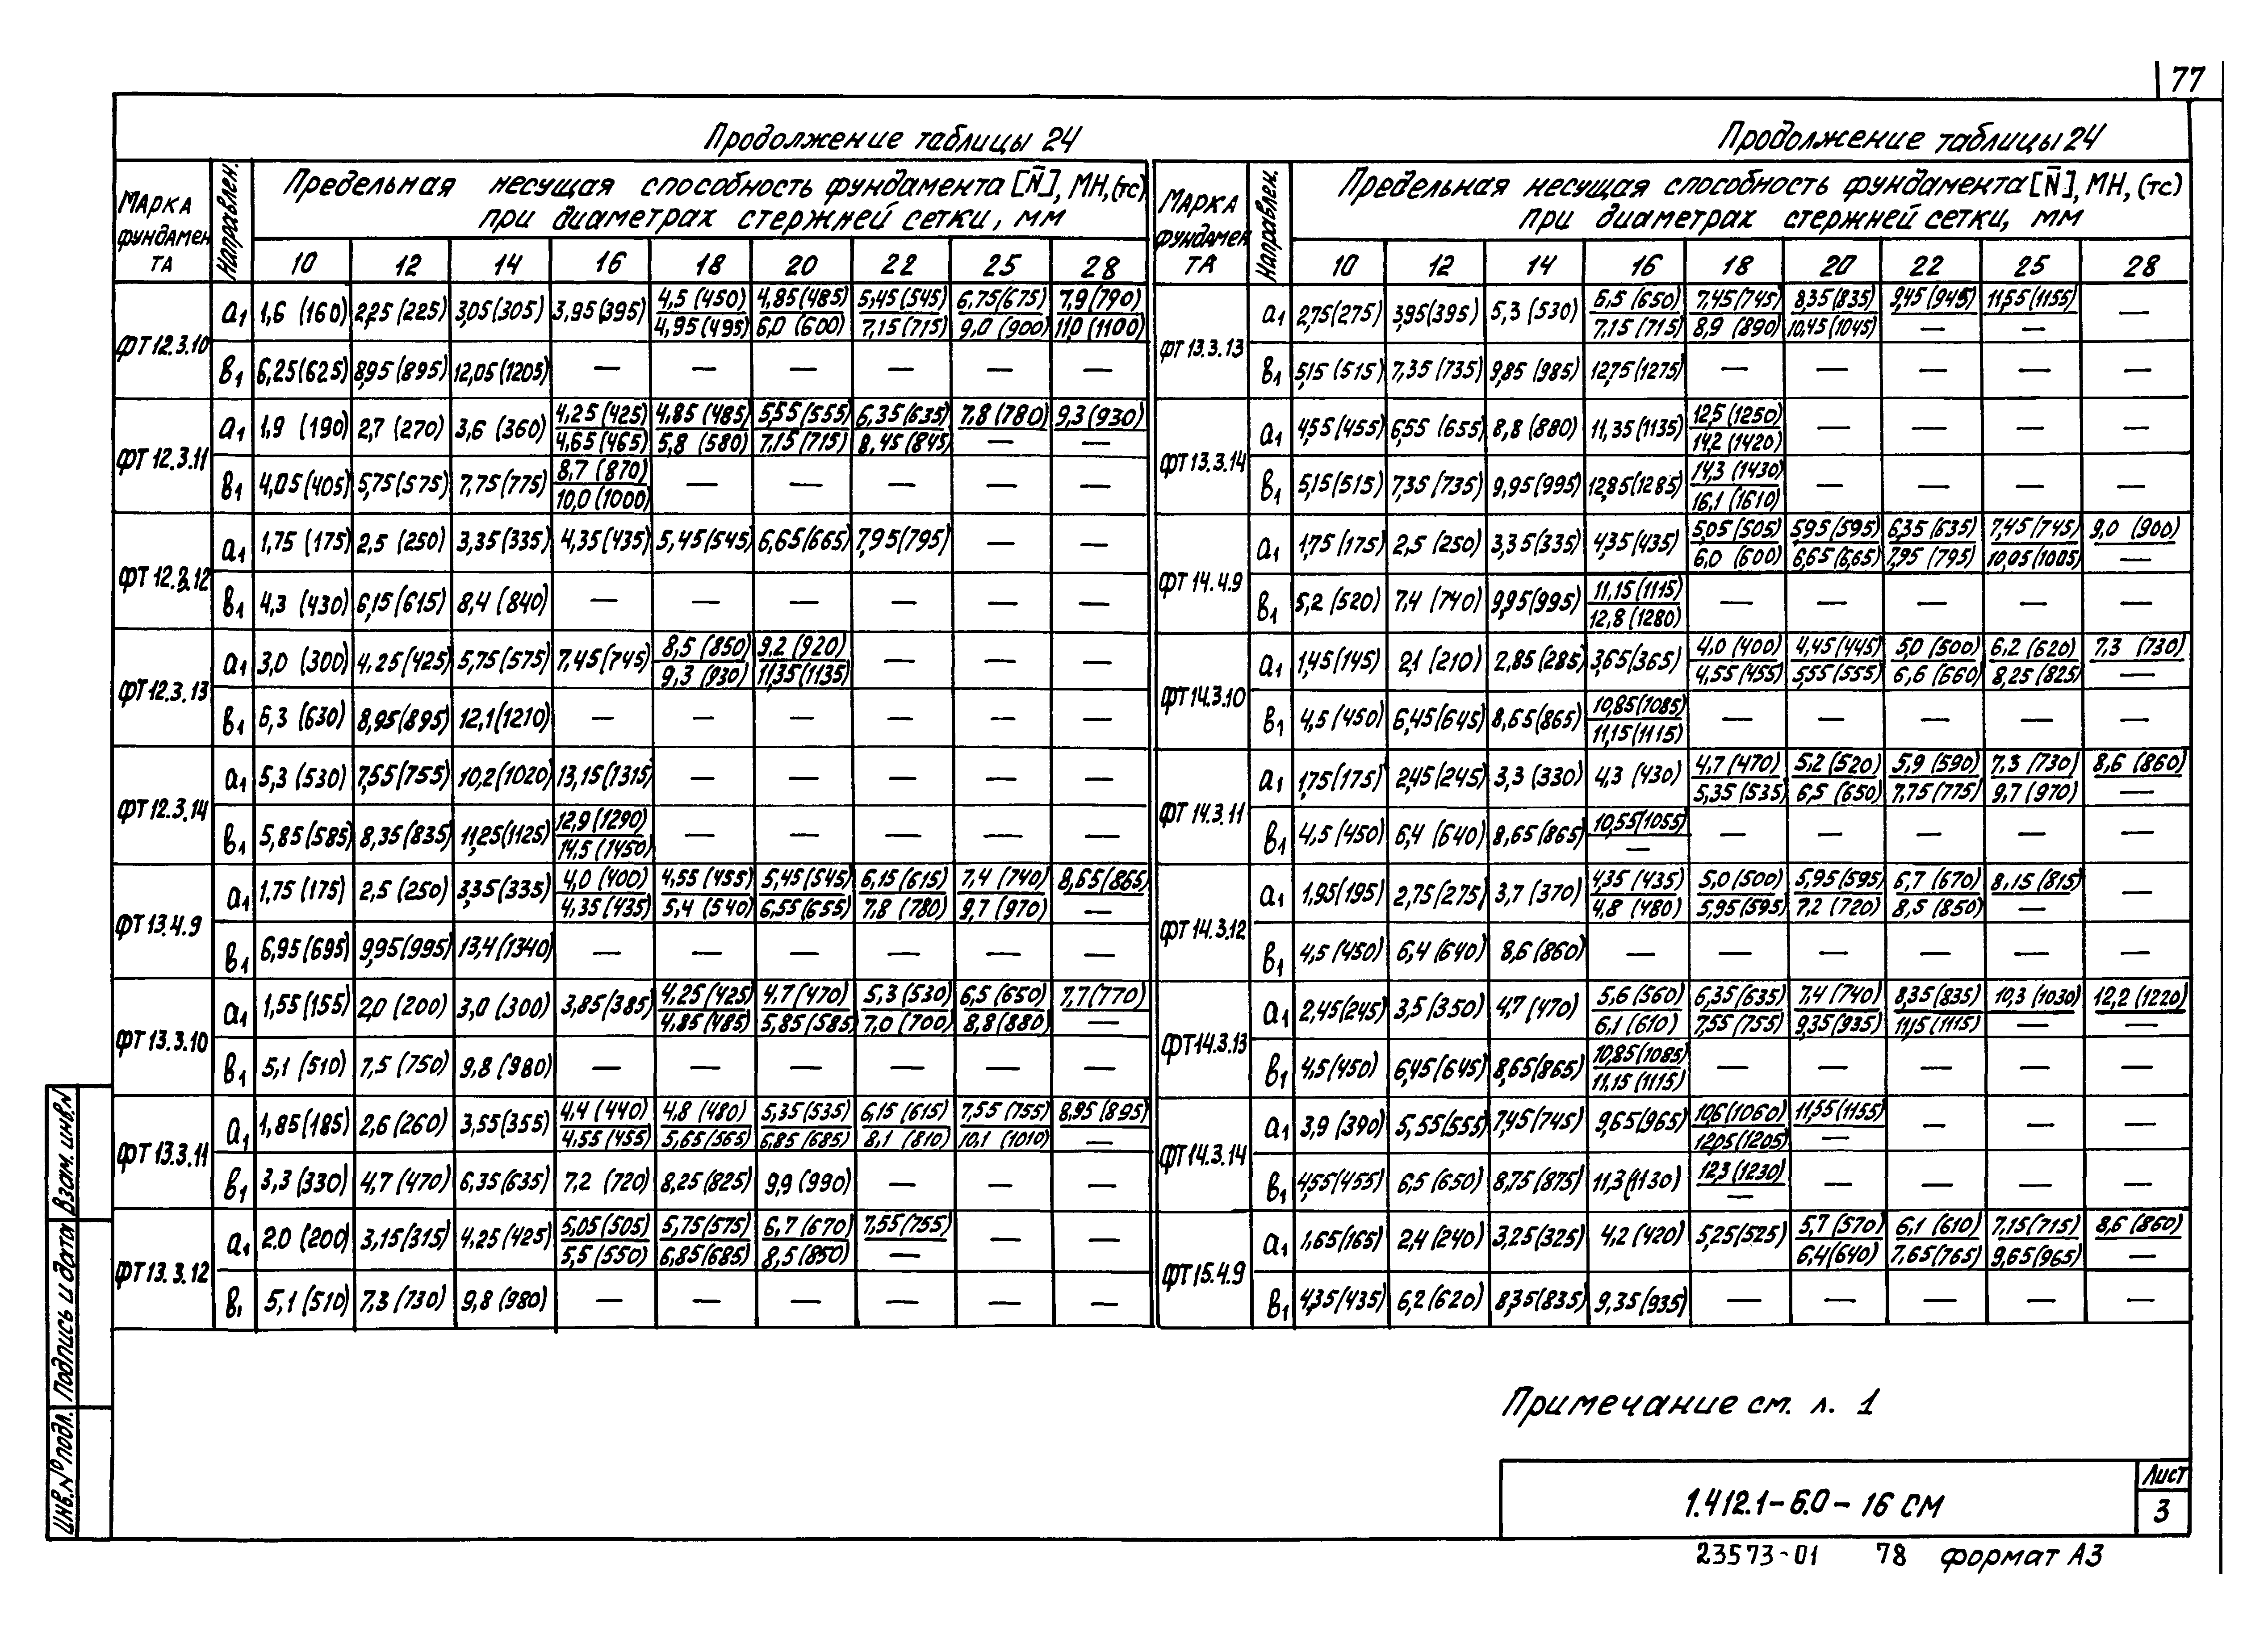 77
Продолжение таблицы 24
Марка фундамента | Направлен. | Предельная несущая способность фундамента [N̄], МН, (тс) при диаметрах стержней сетки, мм
10 | 12 | 14 | 16 | 18 | 20 | 22 | 25 | 28
ФТ12.3.10 | а1 | 1,6 (160) | 2,25 (225) | 3,05 (305) | 3,95 (395) | 4,5 (450) / 4,95 (495) | 4,85 (485) / 6,0 (600) | 5,45 (545) / 7,15 (715) | 6,75 (675) / 9,0 (900) | 7,9 (790) / 11,0 (1100)
в1 | 6,25 (625) | 8,95 (895) | 12,05 (1205) | — | — | — | — | — | —
ФТ12.3.11 | а1 | 1,9 (190) | 2,7 (270) | 3,6 (360) | 4,25 (425) / 4,65 (465) | 4,85 (485) / 5,8 (580) | 5,55 (555) / 7,15 (715) | 6,35 (635) / 8,45 (845) | 7,8 (780) / — | 9,3 (930) / —
в1 | 4,05 (405) | 5,75 (575) | 7,75 (775) | 8,7 (870) / 10,0 (1000) | — | — | — | — | —
ФТ12.3.12 | а1 | 1,75 (175) | 2,5 (250) | 3,35 (335) | 4,35 (435) | 5,45 (545) | 6,65 (665) | 7,95 (795) | — | —
в1 | 4,3 (430) | 6,15 (615) | 8,4 (840) | — | — | — | — | — | —
ФТ12.3.13 | а1 | 3,0 (300) | 4,25 (425) | 5,75 (575) | 7,45 (745) | 8,5 (850) / 9,3 (930) | 9,2 (920) / 11,35 (1135) | — | — | —
в1 | 6,3 (630) | 8,95 (895) | 12,1 (1210) | — | — | — | — | — | —
ФТ12.3.14 | а1 | 5,3 (530) | 7,55 (755) | 10,2 (1020) | 13,15 (1315) | — | — | — | — | —
в1 | 5,85 (585) | 8,35 (835) | 11,25 (1125) | 12,9 (1290) / 14,5 (1450) | — | — | — | — | —
ФТ13.4.9 | а1 | 1,75 (175) | 2,5 (250) | 3,35 (335) | 4,0 (400) / 4,35 (435) | 4,55 (455) / 5,4 (540) | 5,45 (545) / 6,55 (655) | 6,15 (615) / 7,8 (780) | 7,4 (740) / 9,7 (970) | 8,65 (865) / —
в1 | 6,95 (695) | 9,95 (995) | 13,4 (1340) | — | — | — | — | — | —
ФТ13.3.10 | а1 | 1,55 (155) | 2,0 (200) | 3,0 (300) | 3,85 (385) | 4,25 (425) / 4,85 (485) | 4,7 (470) / 5,85 (585) | 5,3 (530) / 7,0 (700) | 6,5 (650) / 8,8 (880) | 7,7 (770) / —
в1 | 5,1 (510) | 7,5 (750) | 9,8 (980) | — | — | — | — | — | —
ФТ13.3.11 | а1 | 1,85 (185) | 2,6 (260) | 3,55 (355) | 4,4 (440) / 4,55 (455) | 4,8 (480) / 5,65 (565) | 5,35 (535) / 6,85 (685) | 6,15 (615) / 8,1 (810) | 7,55 (755) / 10,1 (1010) | 8,95 (895) / —
в1 | 3,3 (330) | 4,7 (470) | 6,35 (635) | 7,2 (720) | 8,25 (825) | 9,9 (990) | — | — | —
ФТ13.3.12 | а1 | 2.0 (200) | 3,15 (315) | 4,25 (425) | 5,05 (505) / 5,5 (550) | 5,75 (575) / 6,85 (685) | 6,7 (670) / 8,5 (850) | 7,55 (755) / — | — | —
в1 | 5,1 (510) | 7,3 (730) | 9,8 (980) | — | — | — | — | — | —
Продолжение таблицы 24
Марка фундамента | Направлен. | Предельная несущая способность фундамента [N̄], МН, (тс) при диаметрах стержней сетки, мм
10 | 12 | 14 | 16 | 18 | 20 | 22 | 25 | 28
ФТ13.3.13 | а1 | 2,75 (275) | 3,95 (395) | 5,3 (530) | 6,5 (650) / 7,15 (715) | 7,45 (745) / 8,9 (890) | 8,35 (835) / 10,45 (1045) | 9,45 (945) / — | 11,55 (1155) / — | —
в1 | 5,15 (515) | 7,35 (735) | 9,85 (985) | 12,75 (1275) | — | — | — | — | —
ФТ13.3.14 | а1 | 4,55 (455) | 6,55 (655) | 8,8 (880) | 11,35 (1135) | 12,5 (1250) / 14,2 (1420) | — | — | — | —
в1 | 5,15 (515) | 7,35 (735) | 9,95 (995) | 12,85 (1285) | 14,3 (1430) / 16,1 (1610) | — | — | — | —
ФТ14.4.9 | а1 | 1,75 (175) | 2,5 (250) | 3,35 (335) | 4,35 (435) | 5,05 (505) / 6,0 (600) | 5,95 (595) / 6,65 (6,65) | 6,35 (635) / 7,95 (795) | 7,45 (745) / 10,05 (1005) | 9,0 (900) / —
в1 | 5,2 (520) | 7,4 (740) | 9,95 (995) | 11,15 (1115) / 12,8 (1280) | — | — | — | — | —
ФТ14.3.10 | а1 | 1,45 (145) | 2,1 (210) | 2,85 (285) | 3,65 (365) | 4,0 (400) / 4,55 (455) | 4,45 (445) / 5,55 (555) | 5,0 (500) / 6,6 (660) | 6,2 (620) / 8,25 (825) | 7,3 (730) / —
в1 | 4,5 (450) | 6,45 (645) | 8,65 (865) | 10,85 (1085) / 11,15 (1115) | — | — | — | — | —
ФТ14.3.11 | а1 | 1,75 (175) | 2,45 (245) | 3,3 (330) | 4,3 (430) | 4,7 (470) / 5,35 (535) | 5,2 (520) / 6,5 (650) | 5,9 (590) / 7,75 (775) | 7,3 (730) / 9,7 (970) | 8,6 (860) / —
в1 | 4,5 (450) | 6,4 (640) | 8,65 (865) | 10,55 (1055) / — | — | — | — | — | —
ФТ14.3.12 | а1 | 1,95 (195) | 2,75 (275) | 3,7 (370) | 4,35 (435) / 4,8 (480) | 5,0 (500) / 5,95 (595) | 5,95 (595) / 7,2 (720) | 6,7 (670) / 8,5 (850) | 8,15 (815) / — | —
в1 | 4,5 (450) | 6,4 (640) | 8,6 (860) | — | — | — | — | — | —
ФТ14.3.13 | а1 | 2,45 (245) | 3,5 (350) | 4,7 (470) | 5,6 (560) / 6,1 (610) | 6,35 (635) / 7,55 (755) | 7,4 (740) / 9,35 (935) | 8,35 (835) / 11,15 (1115) | 10,3 (1030) / — | 12,2 (1220) / —
в1 | 4,5 (450) | 6,45 (645) | 8,65 (865) | 10,85 (1085) / 11,15 (1115) | — | — | — | — | —
ФТ14.3.14 | а1 | 3,9 (390) | 5,55 (555) | 7,45 (745) | 9,65 (965) | 10,6 (1060) / 12,05 (1205) | 11,55 (1155) / — | — | — | —
в1 | 4,55 (455) | 6,5 (650) | 8,75 (875) | 11,3 (1130) | 12,3 (1230) / — | — | — | — | —
ФТ15.4.9 | а1 | 1,65 (165) | 2,4 (240) | 3,25 (325) | 4,2 (420) | 5,25 (525) | 5,7 (570) / 6,4 (640) | 6,1 (610) / 7,65 (765) | 7,15 (715) / 9,65 (965) | 8,6 (860) / —
в1 | 4,35 (435) | 6,2 (620) | 8,35 (835) | 9,35 (935) | — | — | — | — | —
Примечание см. л. 1
1.412.1-6.0-16 СМ
Лист
3
23573-01 78 формат А3
Взам. инв.N
Подпись и дата
Инв.№ подл.